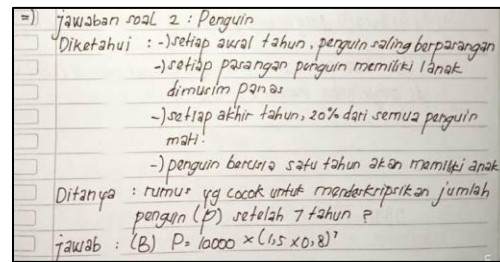 =) jawaban soal 2 : Penguin
Diketahui : -) setiap awal tahun, penguin saling berpasangan
-) setiap pasangan penguin memiliki 1 anak
dimusim panas
-) setiap akhir tahun, 20% dari semua penguin
mati.
-) penguin berusia satu tahun akan memiliki anak
Ditanya : rumus yg cocok untuk mendeskripsikan jumlah
penguin (P) setelah 7 tahun ?
jawab : (B) P = 10000 × (1,5 × 0,8)⁷